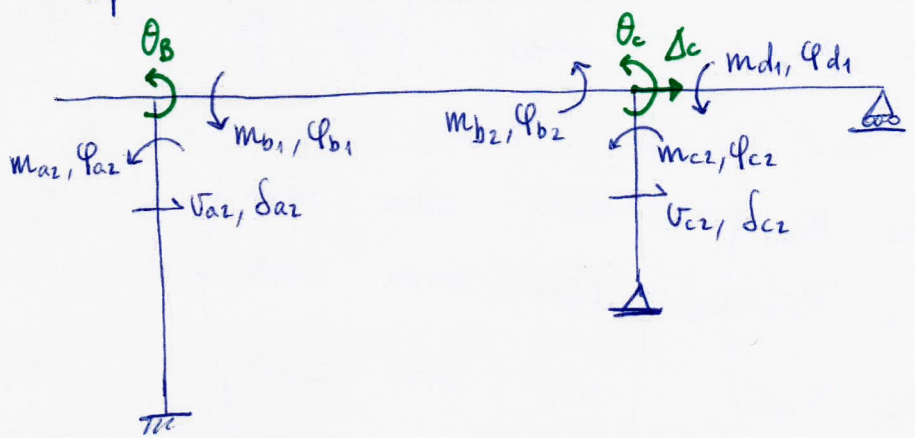 θ_B
θ_c Δ_c m_d1, φ_d1
m_b1, φ_b1 m_b2, φ_b2
m_a2, φ_a2 m_c2, φ_c2
v_a2, δ_a2 v_c2, δ_c2